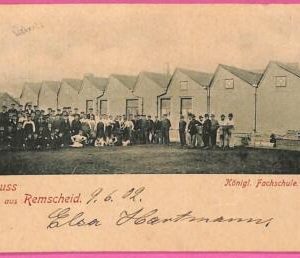 uss
aus Remscheid. 9.6.02. Königl. Fachschule.
Elsa Hartmann,